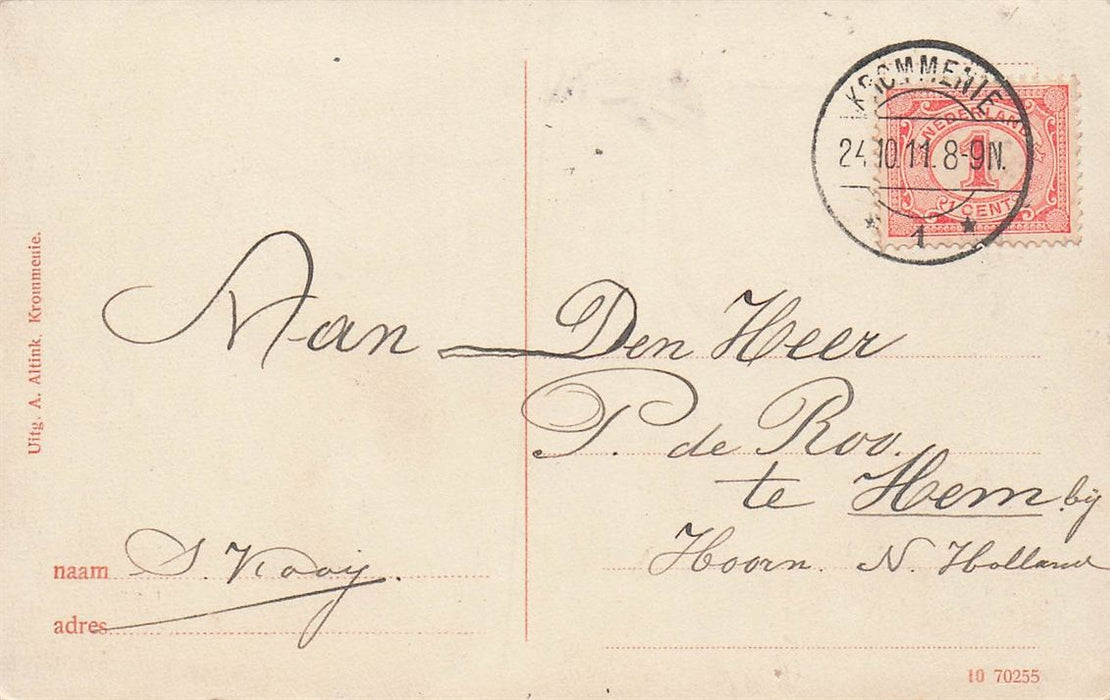 KROMMENIE
24.10.11.8-9N.
1
NEDERLAND
1
CENT
Uitg. A. Altink, Krommenie.
Aan Den Heer
P. de Roo.
te Hem bij
Hoorn. N. Holland
naam S. Kooij.
adres
10 70255